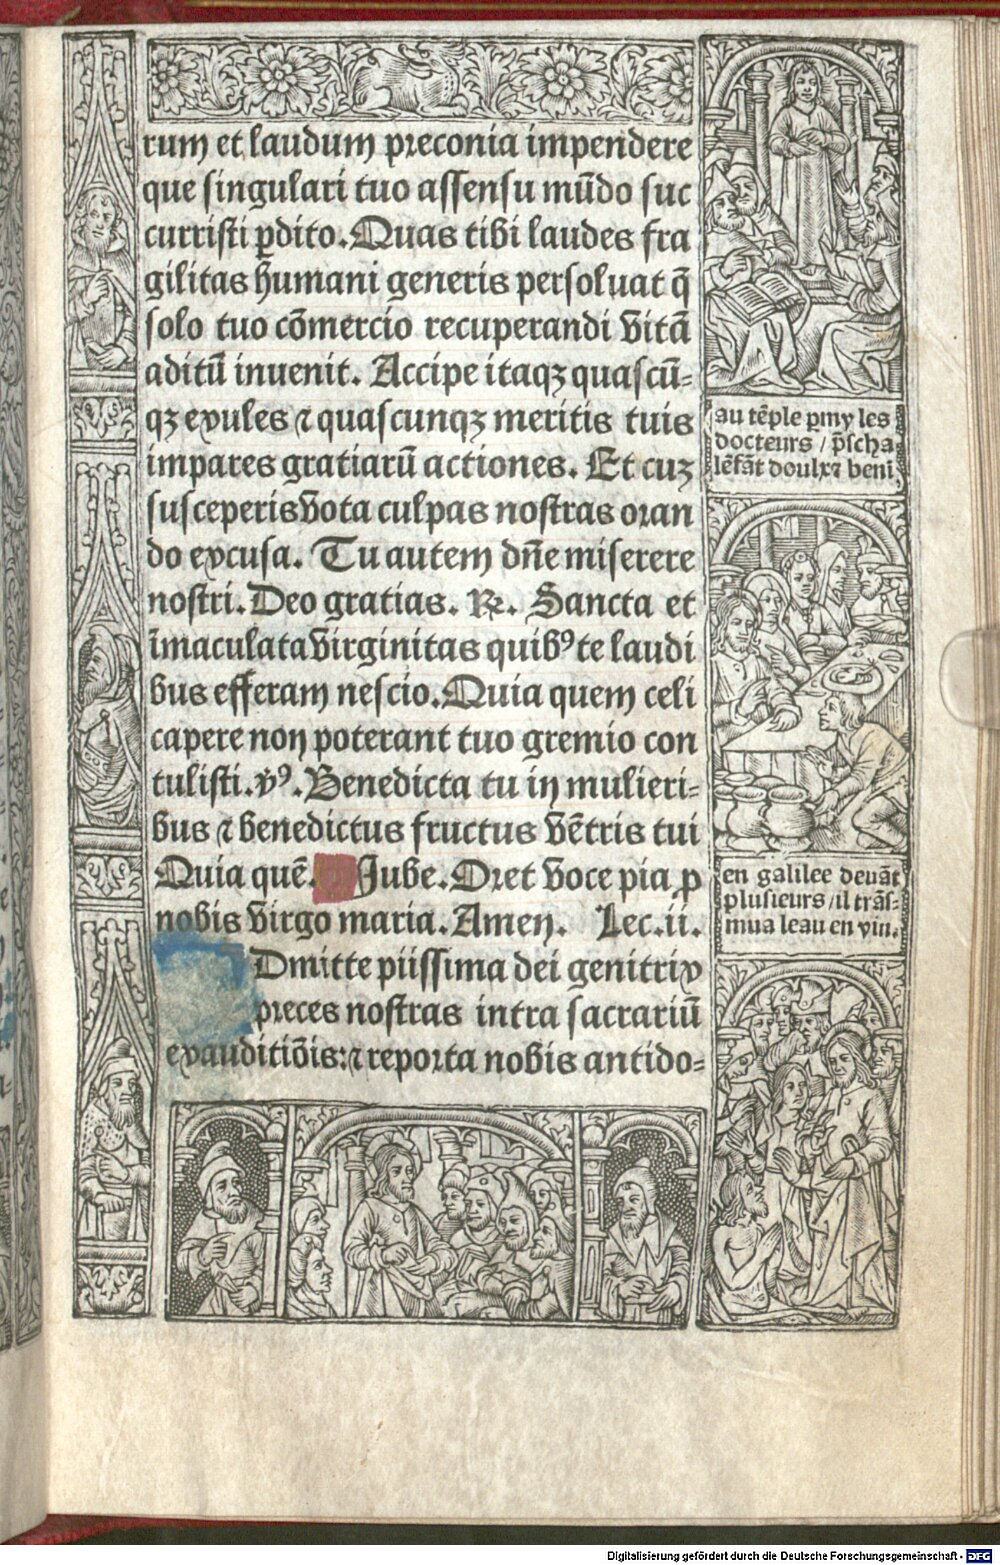 rum et laudum preconia impendere
que singulari tuo assensu mūdo suc
curristi ꝑdito. Quas tibi laudes fra
gilitas humani generis persoluat q̄
solo tuo cōmercio recuperandi vitā
aditū inuenit. Accipe itaqꝫ quascū=
qꝫ exules ⁊ quascunqꝫ meritis tuis
impares gratiarū actiones. Et cuꝫ
susceperis vota culpas nostras oran
do excusa. Tu autem dn̄e miserere
nostri. Deo gratias. ℞. Sancta et
īmaculata virginitas quibꝰ te laudi
bus efferam nescio. Quia quem celi
capere non poterant tuo gremio con
tulisti. v̾ꝰ. Benedicta tu in mulieri=
bus ⁊ benedictus fructus vētris tui
Quia quē. Jube. Oret voce pia ꝓ
nobis virgo maria. Amen. Lec. ii.
Dmitte piissima dei genitrix
preces nostras intra sacrariū
exauditiōis: ⁊ reporta nobis antido=
au tēple ꝑmy les
docteurs / p̄scha
lēfāt doulx ⁊ beni
en galilee deuāt
plusieurs / il trās=
mua leau en vin.
Digitalisierung gefördert durch die Deutsche Forschungsgemeinschaft - DFG